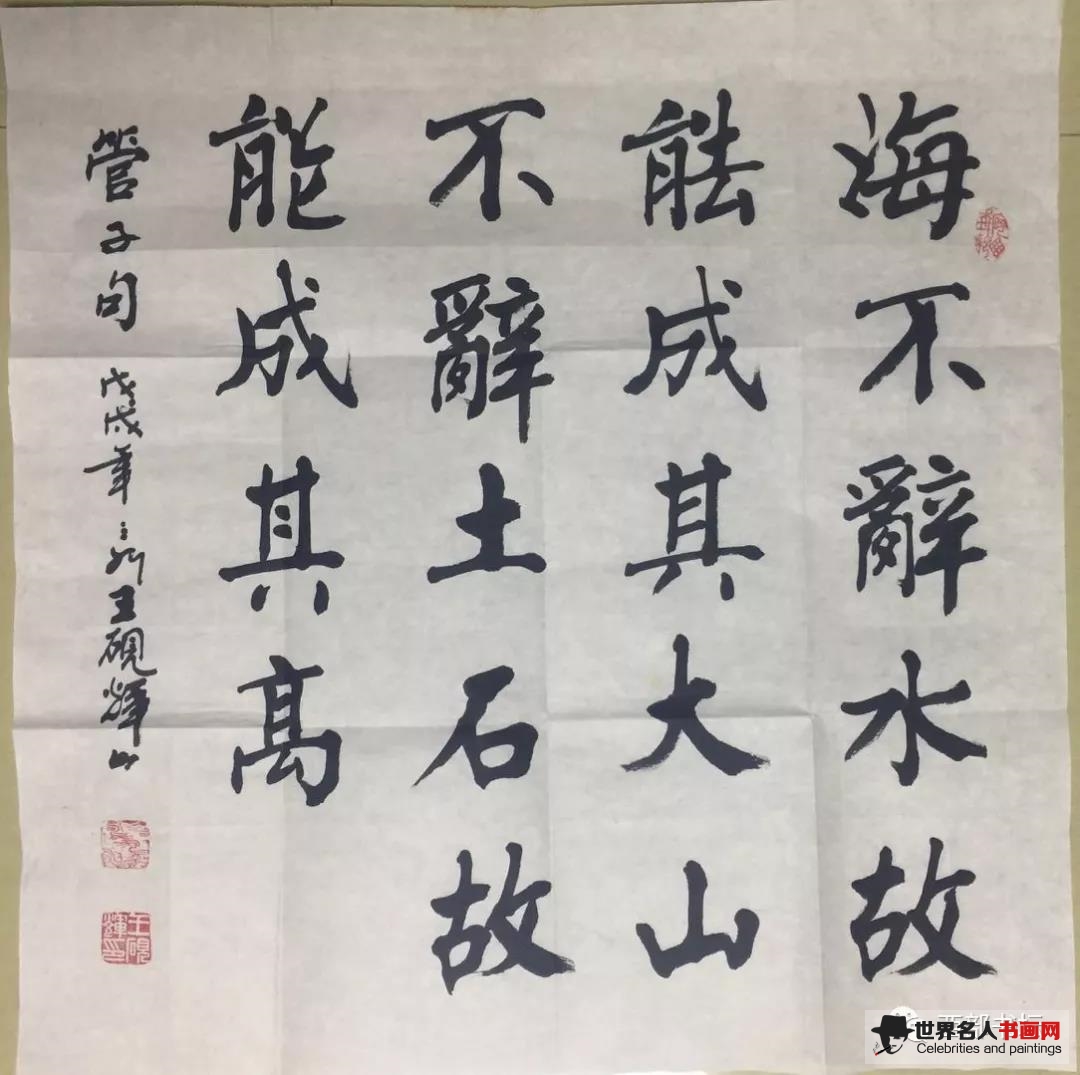 海不辭水故
能成其大山
不辭土石故
能成其高
管子句 戊戌年 王砚輝
王砚輝印
世界名人书画网
Celebrities and paintings